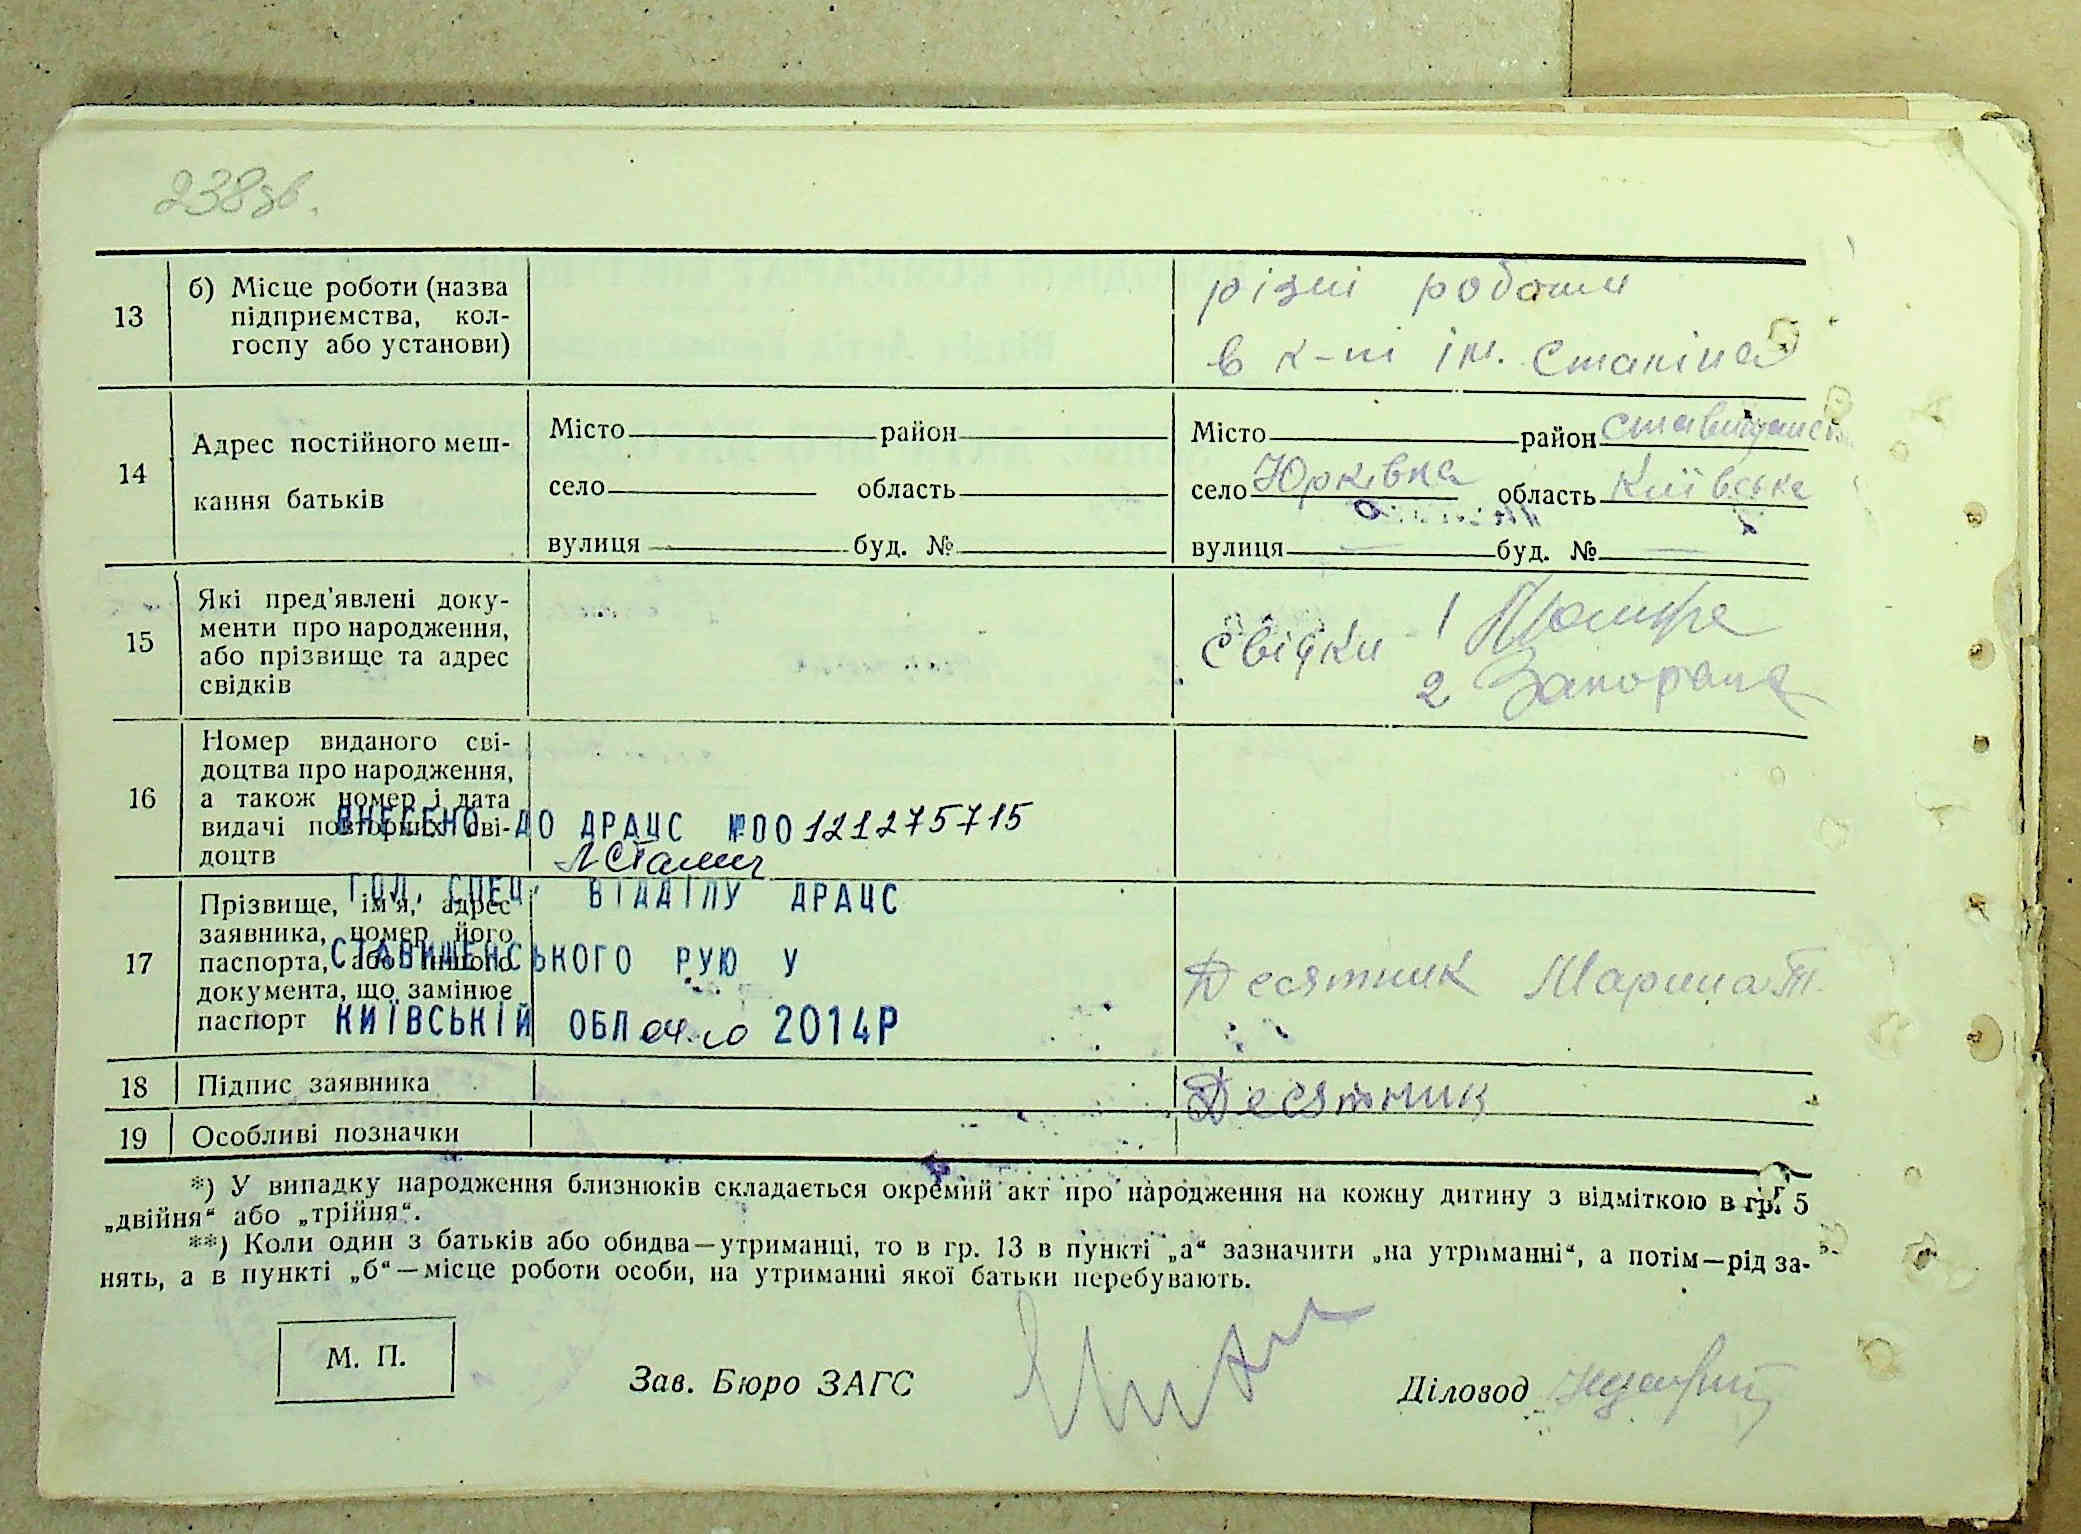 238зв.
13
б) Місце роботи (назва
підприємства, кол-
госпу або установи)
різні роботи
в к-пі ім. Сталіна
14
Адрес постійного меш-
кання батьків
Місто район
село область
вулиця буд. №
Місто район Ставищанськ
село Юрківка область Київська
вулиця — буд. № —
15
Які пред'явлені доку-
менти про народження,
або прізвище та адрес
свідків
Свідки - 1
2
16
Номер виданого сві-
доцтва про народження,
а також номер і дата
видачі повторних сві-
доцтв
ВНЕСЕНО ДО ДРАЦС №00121275715
ГОЛ. СПЕЦ. ВІДДІЛУ ДРАЦС
СТАВИЩЕНСЬКОГО РУЮ У
КИЇВСЬКІЙ ОБЛ 04.10 2014Р
17
Прізвище, ім'я, адрес
заявника, номер його
паспорта, або іншого
документа, що замінює
паспорт
Десятник Марина Т.
18
Підпис заявника
Десятник
19
Особливі позначки
*) У випадку народження близнюків складається окремий акт про народження на кожну дитину з відміткою в гр. 5
„двійня“ або „трійня“.
**) Коли один з батьків або обидва—утриманці, то в гр. 13 в пункті „а“ зазначити „на утриманні“, а потім—рід за-
нять, а в пункті „б“—місце роботи особи, на утриманні якої батьки перебувають.
М. П.
Зав. Бюро ЗАГС
Діловод